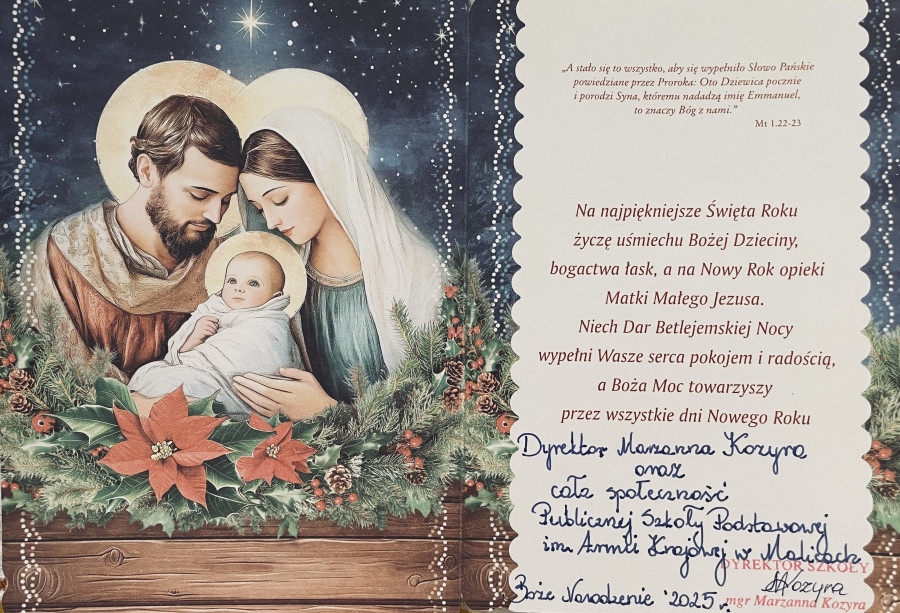 „A stało się to wszystko, aby się wypełniło Słowo Pańskie
powiedziane przez Proroka: Oto Dziewica pocznie
i porodzi Syna, któremu nadadzą imię Emmanuel,
to znaczy Bóg z nami.”
Mt 1.22-23
Na najpiękniejsze Święta Roku
życzę uśmiechu Bożej Dzieciny,
bogactwa łask, a na Nowy Rok opieki
Matki Małego Jezusa.
Niech Dar Betlejemskiej Nocy
wypełni Wasze serca pokojem i radością,
a Boża Moc towarzyszy
przez wszystkie dni Nowego Roku
Dyrektor Marzanna Kozyra
oraz
cała społeczność
Publicznej Szkoły Podstawowej
im. Armii Krajowej w Malicach
DYREKTOR SZKOŁY
MKozyra
mgr Marzanna Kozyra
Boże Narodzenie '2025r.